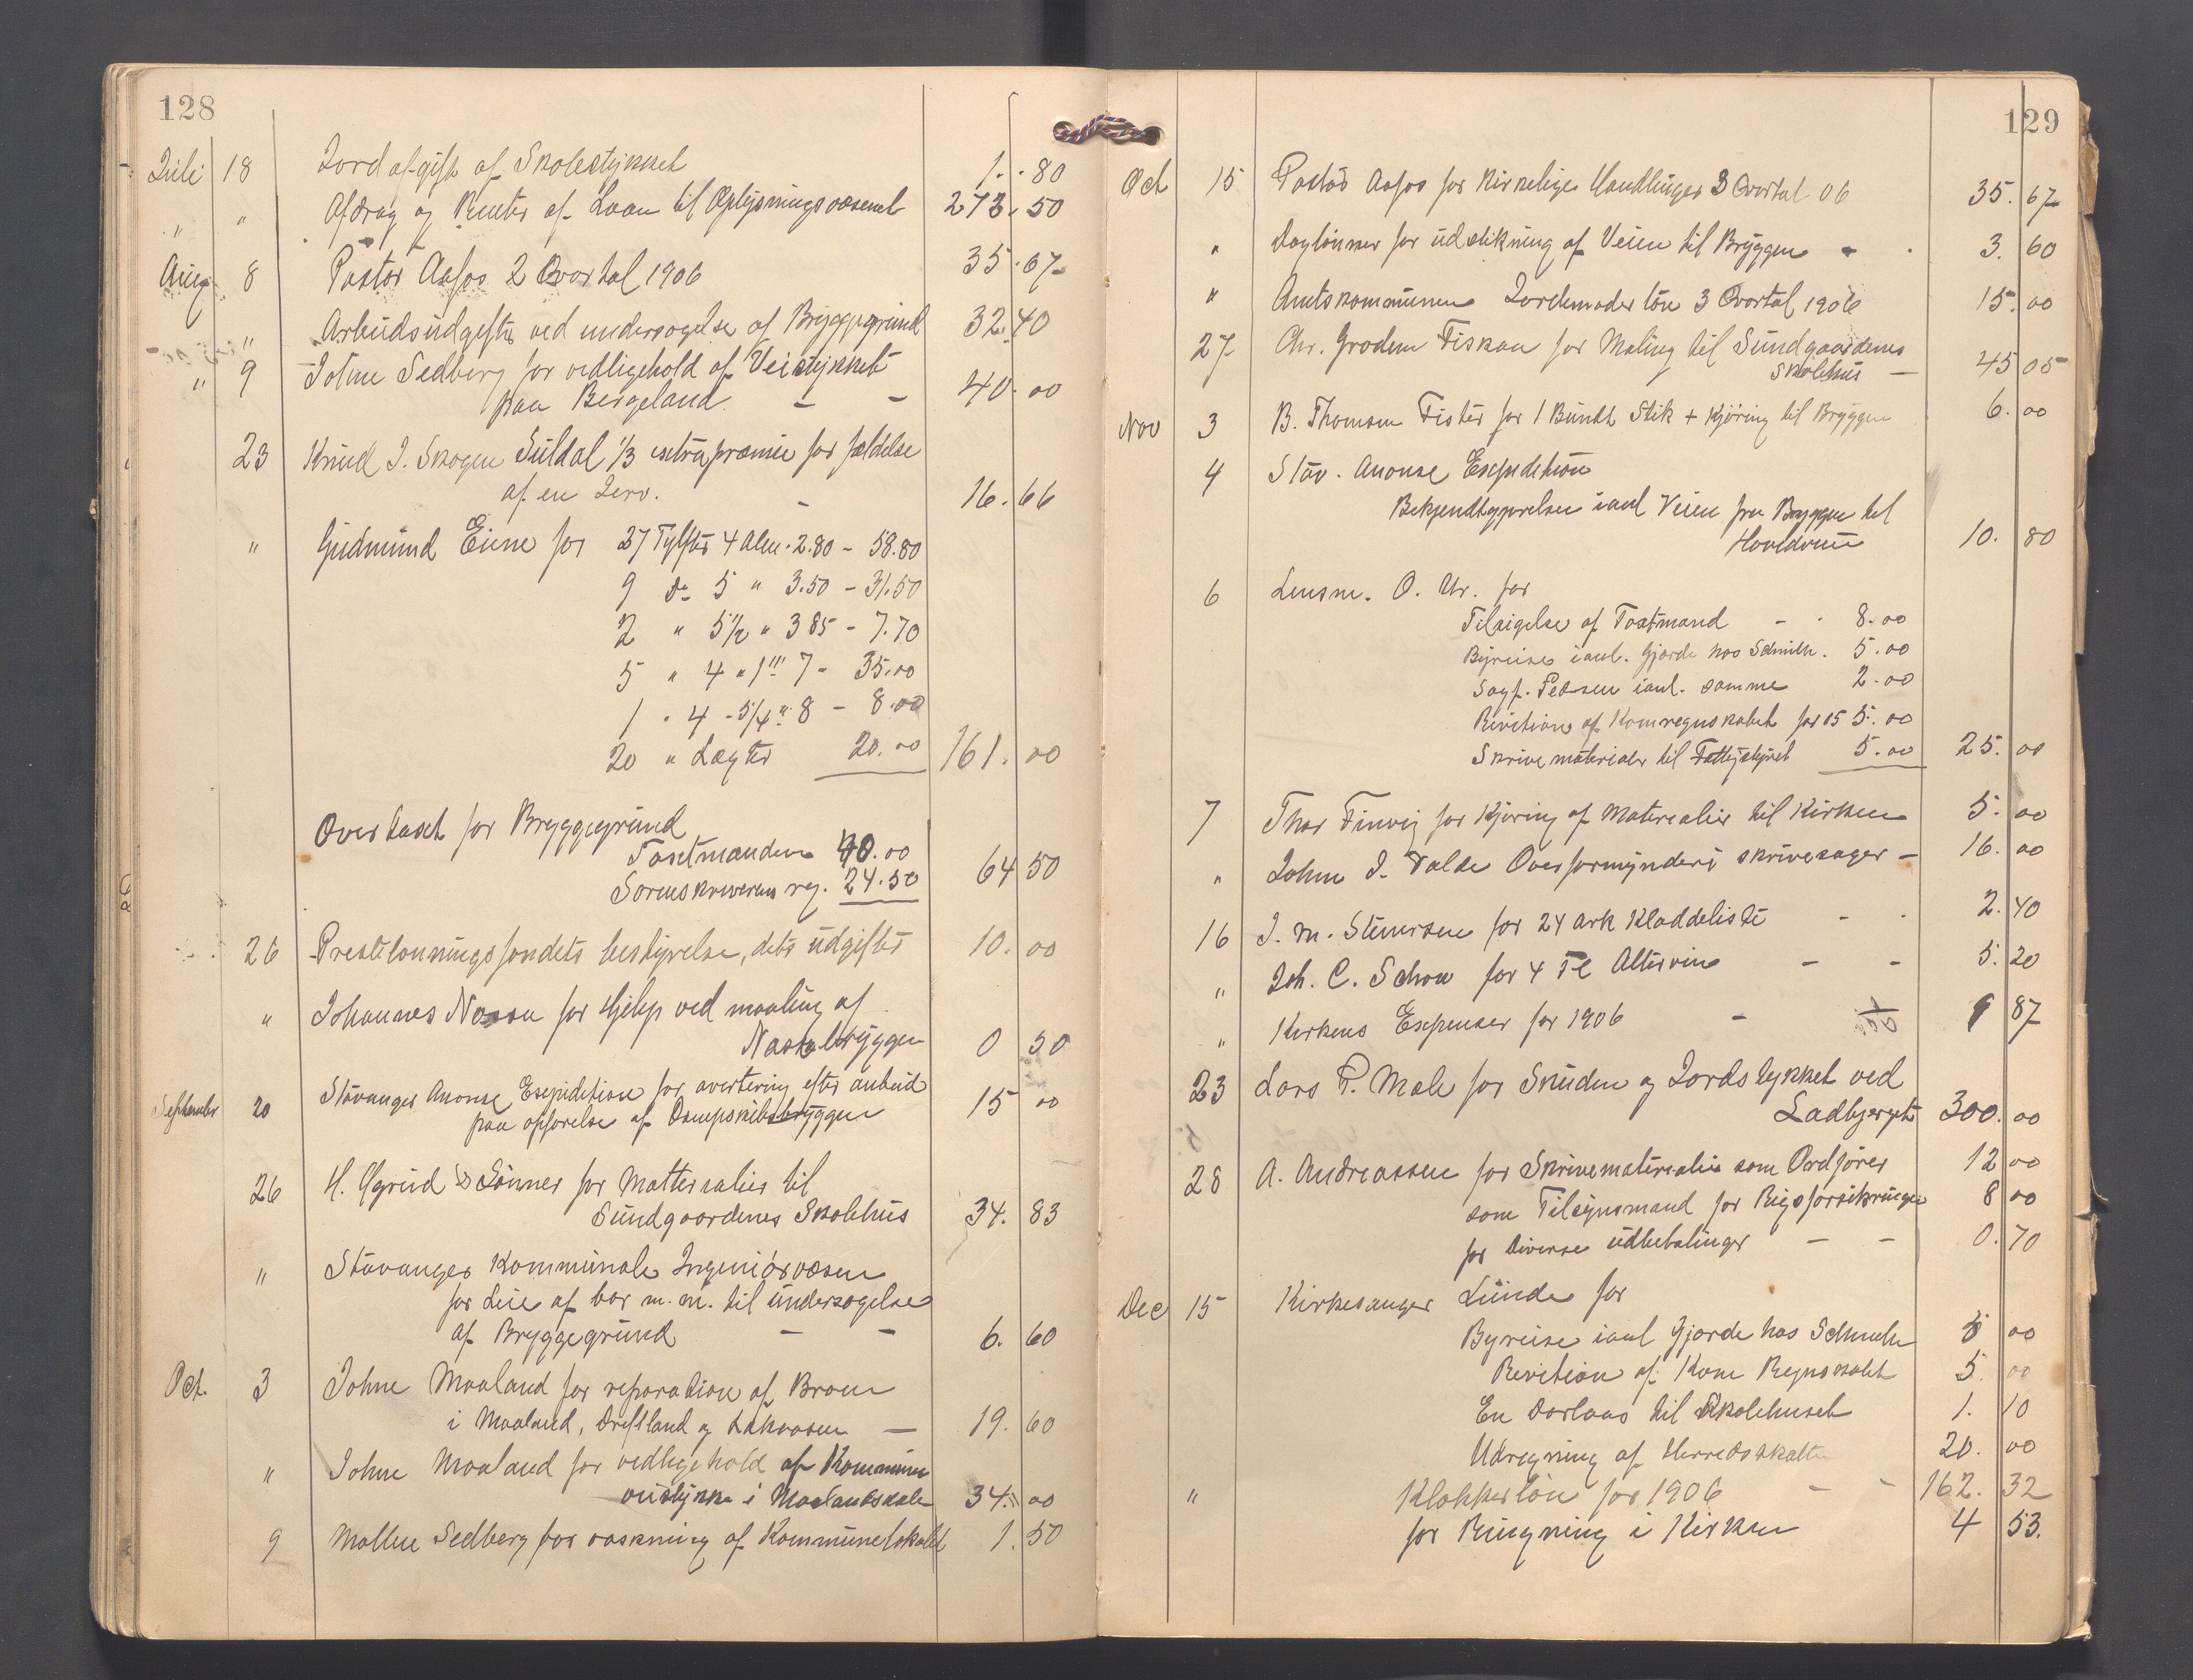 128
Juli 18 Jordafgift af Skolestykket 1. 80
" " Afdrag og Renter af Laan til Oplysningsvæsenet 273. 50
Aug 8 Pastor Aafos 2 Qvartal 1906 35. 67
" Arbeidsudgifter ved undersøgelse af Bryggegrund 32. 40
" 9 Johne Sedberg for vedligehold af Veistykket
paa Bergeland. – – 40. 00
23 Knud J. Skogen Suldal 1/3 extrapræmie for fældelse
af en Jerv. – 16. 66
" Gudmund Eiene for 27 Tylfter 4 Alen. 2.80 – 58.80
9 do 5 " 3.50 – 31.50
2 " 5 1/2 " 3 85 – 7.70
5 " 4 " 1''' 7 – 35.00
1 " 4 – 5/4 " 8 – 8.00
20 " Lægter 20.00 161. 00
Overtaxt for Bryggegrund
Taxtmændene 40.00
Sorenskriverens reg. 24.50 64 50
26 Prestelønningsfondets bestyrelse, dets udgifter 10. 00
" Johannes for Hjelp ved maaling af
bryggen 0 50
September 20 Stavanger Anonse Expidition for avertering efter anbud
paa opførelse af Dampskibsbryggen 15 00
26 H. Øgrind & Sønner for Matterialier til
Sundgaardenes Skolehus 34. 83
" Stavanger Kommunale Ingeniørvæsen
for Leie af bor m.m. til undersøgelse
af Bryggegrund – – 6. 60
Oct. 3 Johne Maaland for reparation af Broen
i Maaland, og – 19. 60
" Johne Maaland for vedligehold af Kommune
veistykke i Maalandsdalen 34. 00
9 Malene Sedberg for vaskning af Kommunelokalet 1. 50
129
Oct 15 Pastor Aafos for Kirkelige Handlinger 3 Qvartal 06 35. 67
" Daglønner for udstikning af Veien til Bryggen – 3. 60
" Amtskommunen Jordemoder løn 3 Qvartal 1906 15. 00
27 Chr. Grodem Fiskaa for Maling til Sundgaardenes
Skolehus – 45 05
Nov 3 B. Thomsen Fister for 1 Bundt Stik + Kjøring til Bryggen 6. 00
4 Stav. Anonse Expedition
Bekjendtgjørelse ianl Veien fra Bryggen til
Hovedveien 10. 80
6 Lensm. O. Ur. for
Tilsigelse af Taxtmænd – 8.00
Byreise ianl. Gjerde hos Schmith. 5.00
Sagf. Pedersen ianl. samme 2.00
Revition af Komregnskabet for 05 5.00
Skrivematerialer til Fattigstyret 5.00 25. 00
7 Thor Finvig for Kjøring af Materialier til Kirken 5. 00
" Johne J. Valde Overformynderi skrivesager – 16. 00
16 J. M. Stenersen for 24 ark Kladdeliste – 2. 40
" Joh. C. Schou for 4 Fl Altervin – – 5. 20
" Kirkens Expenser for 1906 – 9 87
23 Lars P. Mæle for Skuden og Jordstykket ved
Ladbjerget 300. 00
28 A. Andreassen for Skrivematerialier som Ordfører 12 00
som Tilsynsmand for Rigsforsikringen 8 00
for Diverse udbetalinger – – 0. 70
Dec 15 Kirkesanger Lunde for
Byreise ianl Gjerde hos Schmith 5 00
Revition af Kom Regnskabet 5. 00
En Dørlaas til Skolehuset 1. 10
Udregning af Herredsskatten 20. 00
" Klokkerløn for 1906 – – 162. 32
for Ringning i Kirken 4 53.